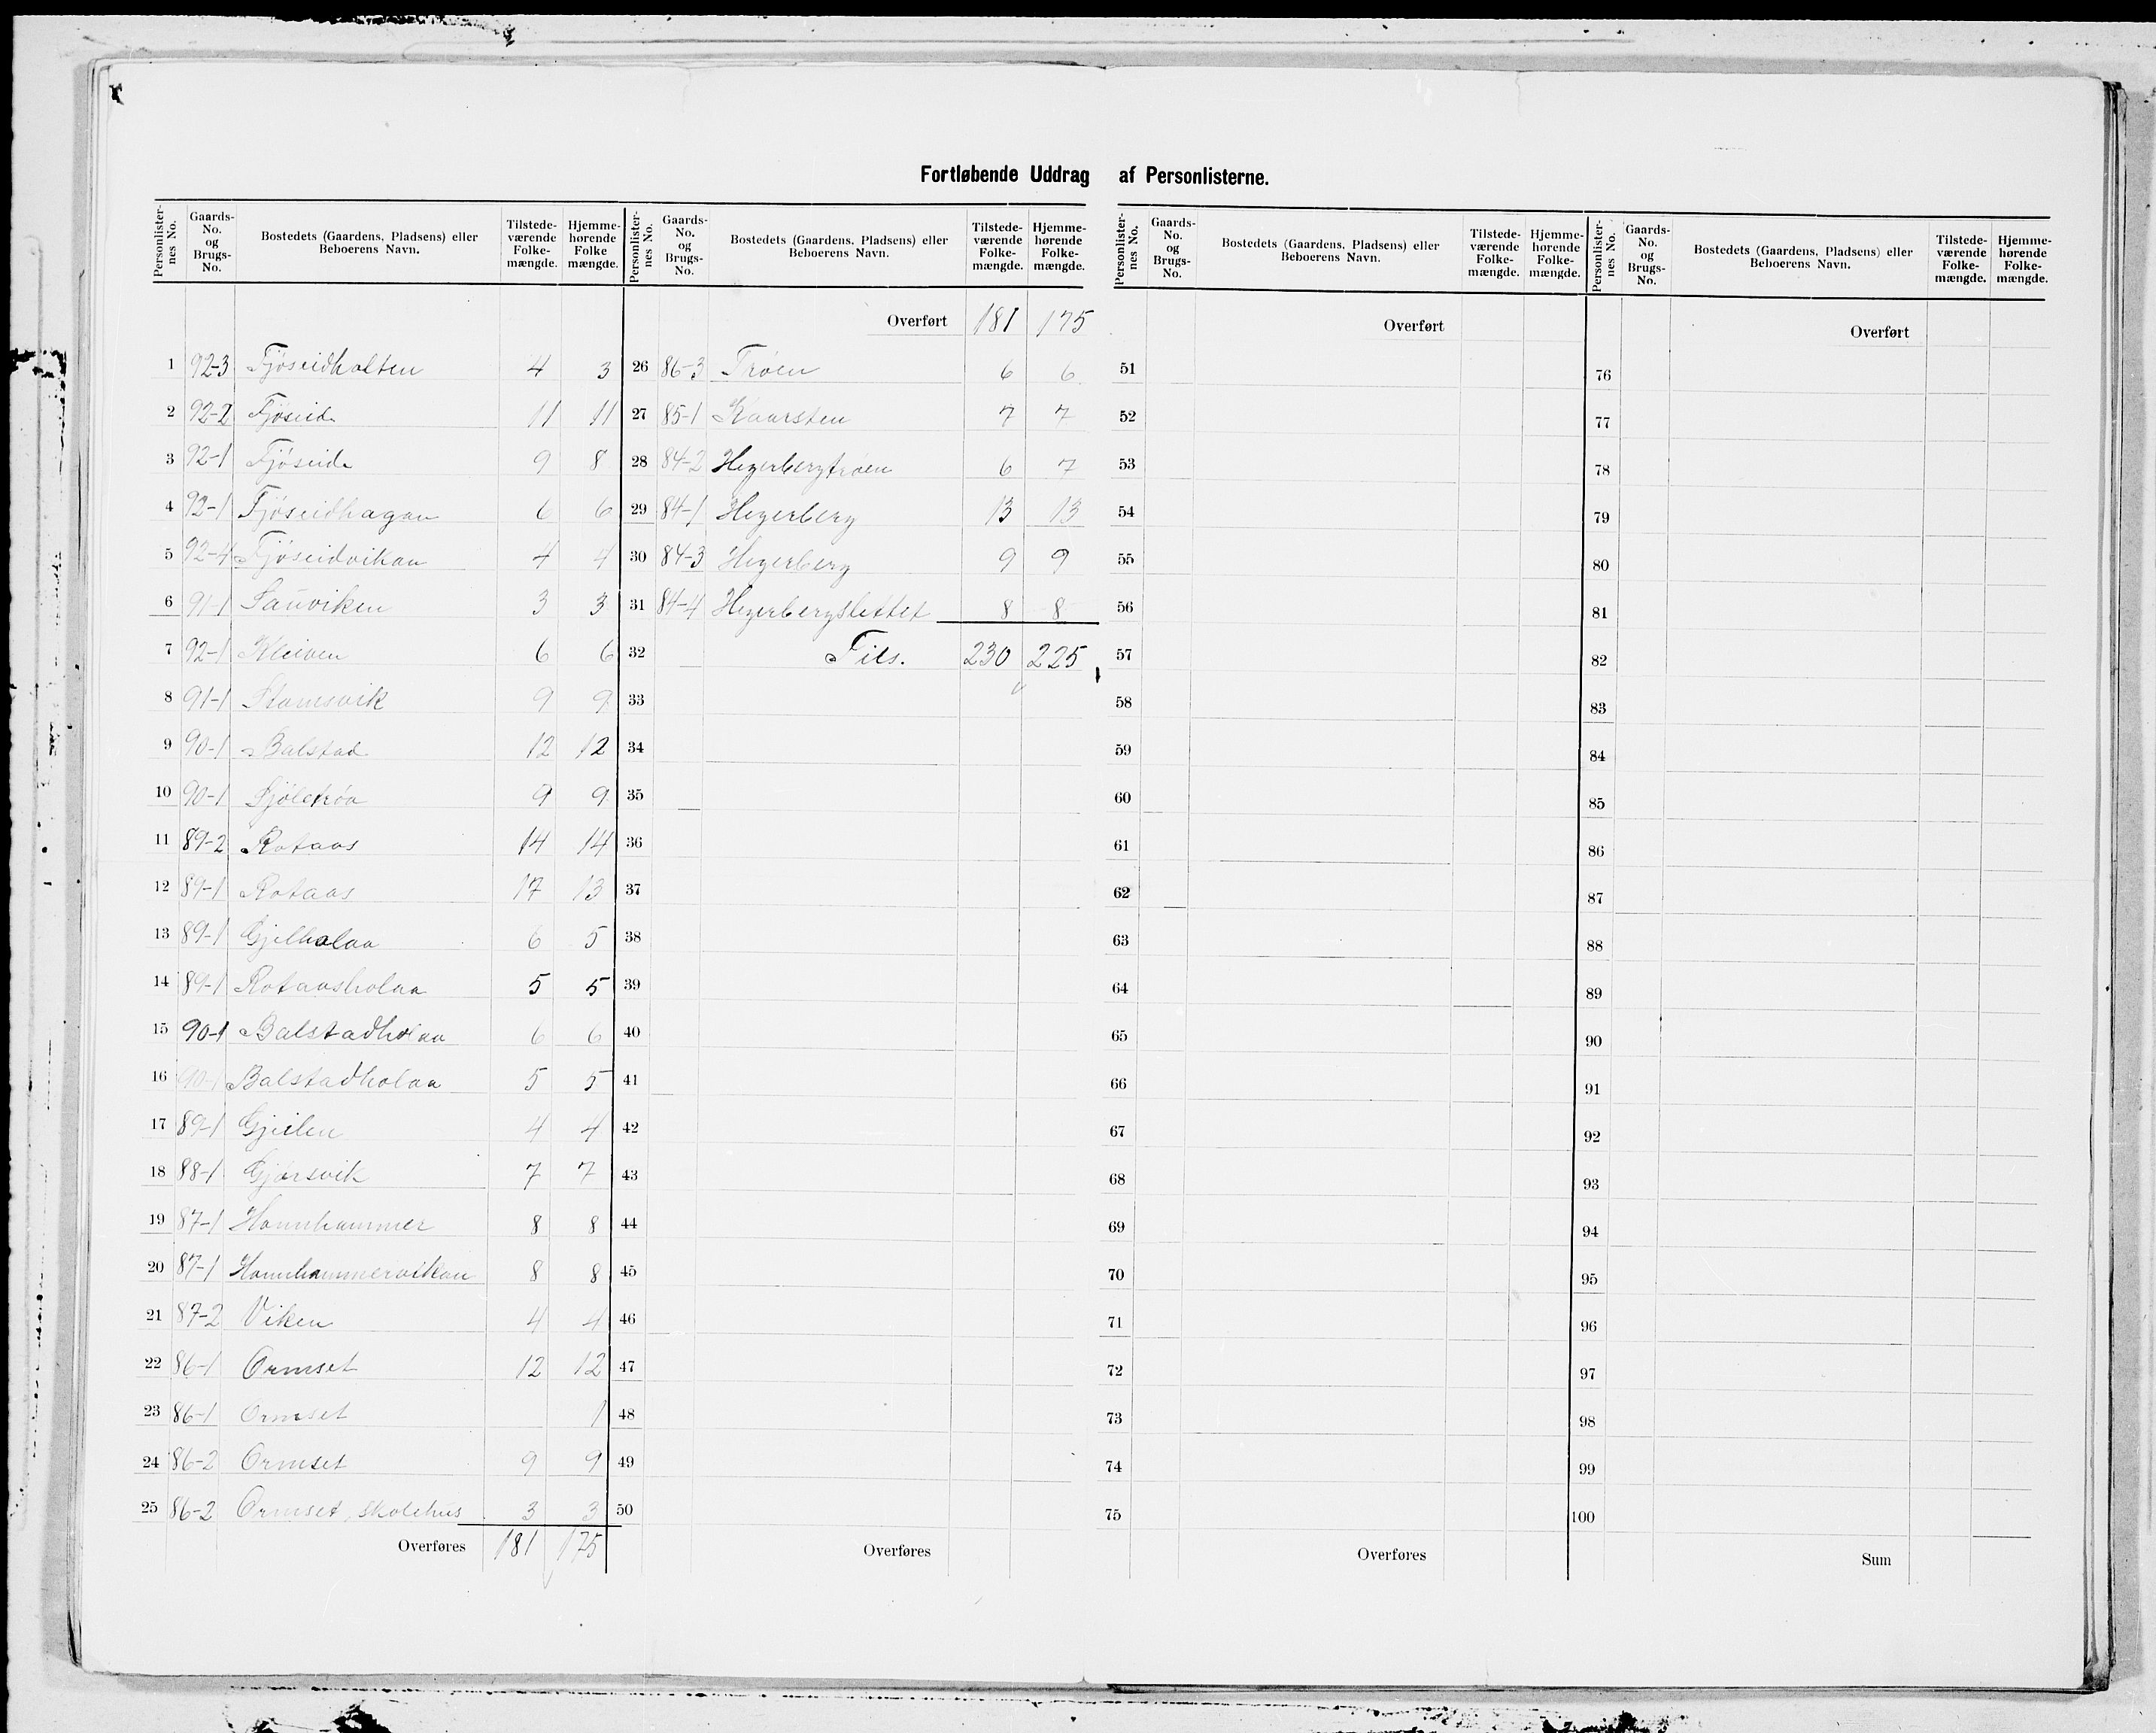 Fortløbende Uddrag af Personlisterne.
Personlister-nes No. | Gaards-No. og Brugs-No. | Bostedets (Gaardens, Pladsens) eller Beboerens Navn. | Tilstede-værende Folke-mængde. | Hjemme-hørende Folke mængde.
1 92-3 Fjøseidholten 4 3
2 92-2 Fjøseide 11 11
3 92-1 Fjøseide 9 8
4 92-1 Fjøseidhagan 6 6
5 92-4 Fjøseidvikan 4 4
6 91-1 Sauviken 3 3
7 92-1 Kleiven 6 6
8 91-1 9 9
9 90-1 Balstad 12 12
10 90-1 9 9
11 89-2 Rotaas 14 14
12 89-1 Rotaas 17 13
13 89-1 Gjelholaa 6 5
14 89-1 Rotaasholaa 5 5
15 90-1 Balstadholaa 6 6
16 90-1 Balstadholaa 5 5
17 89-1 Gjeilen 4 4
18 88-1 Gjørsvik 7 7
19 87-1 Hannhammer 8 8
20 87-1 Hannhammervikan 8 8
21 87-2 Viken 4 4
22 86-1 Ormset 12 12
23 86-1 Ormset 1
24 86-2 Ormset 9 9
25 86-2 Ormset, skolehus 3 3
Overføres 181 175
Personlister-nes No. | Gaards-No. og Brugs-No. | Bostedets (Gaardens, Pladsens) eller Beboerens Navn. | Tilstede-værende Folke-mængde. | Hjemme-hørende Folke-mængde.
Overført 181 175
26 86-3 Trøen 6 6
27 85-1 Kaarsten 7 7
28 84-2 Hegerbergtrøen 6 7
29 84-1 Hegerberg 13 13
30 84-3 Hegerberg 9 9
31 84-4 Hegerbergslettet 8 8
32 Tils. 230 225
33
34
35
36
37
38
39
40
41
42
43
44
45
46
47
48
49
50
Overføres
Personlister-nes No. | Gaards-No. og Brugs-No. | Bostedets (Gaardens, Pladsens) eller Beboerens Navn. | Tilstede-værende Folke-mængde. | Hjemme-hørende Folke-mængde.
Overført
51
52
53
54
55
56
57
58
59
60
61
62
63
64
65
66
67
68
69
70
71
72
73
74
75
Overføres
Personlister-nes No. | Gaards-No. og Brugs-No. | Bostedets (Gaardens, Pladsens) eller Beboerens Navn. | Tilstede-værende Folke-mængde. | Hjemme-hørende Folke-mængde.
Overført
76
77
78
79
80
81
82
83
84
85
86
87
88
89
90
91
92
93
94
95
96
97
98
99
100
Sum